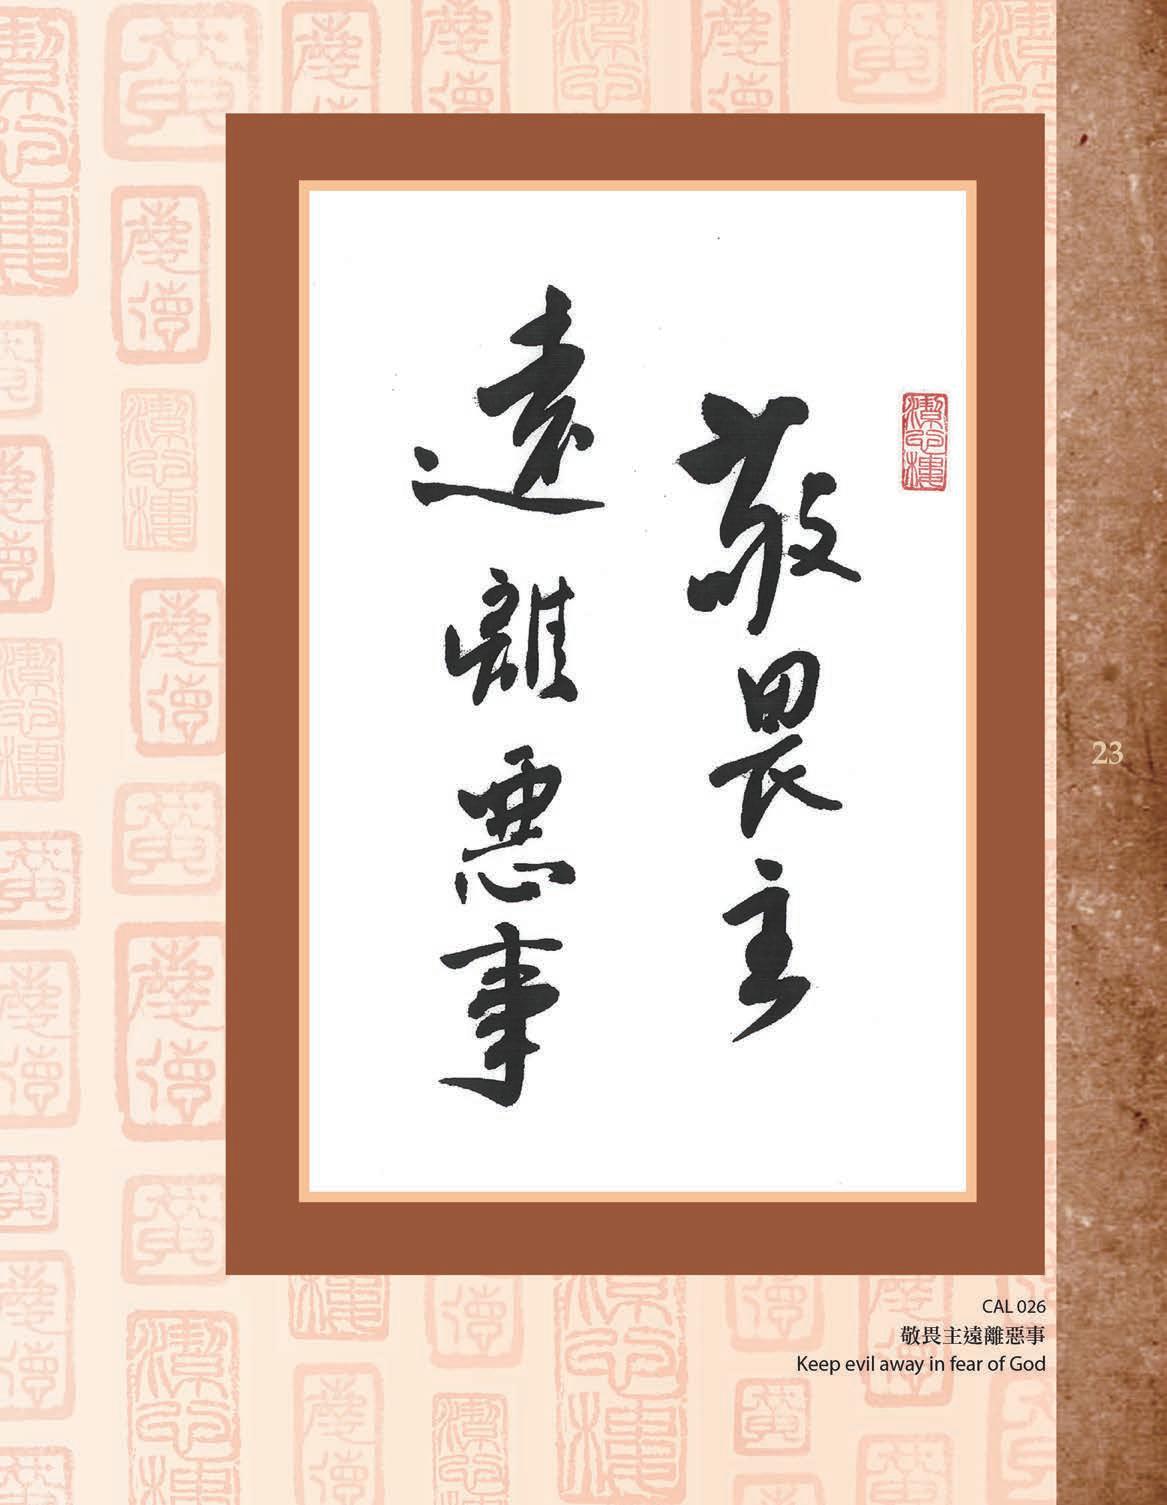 敬畏主
遠離惡事
潔心樓
23
CAL 026
敬畏主遠離惡事
Keep evil away in fear of God